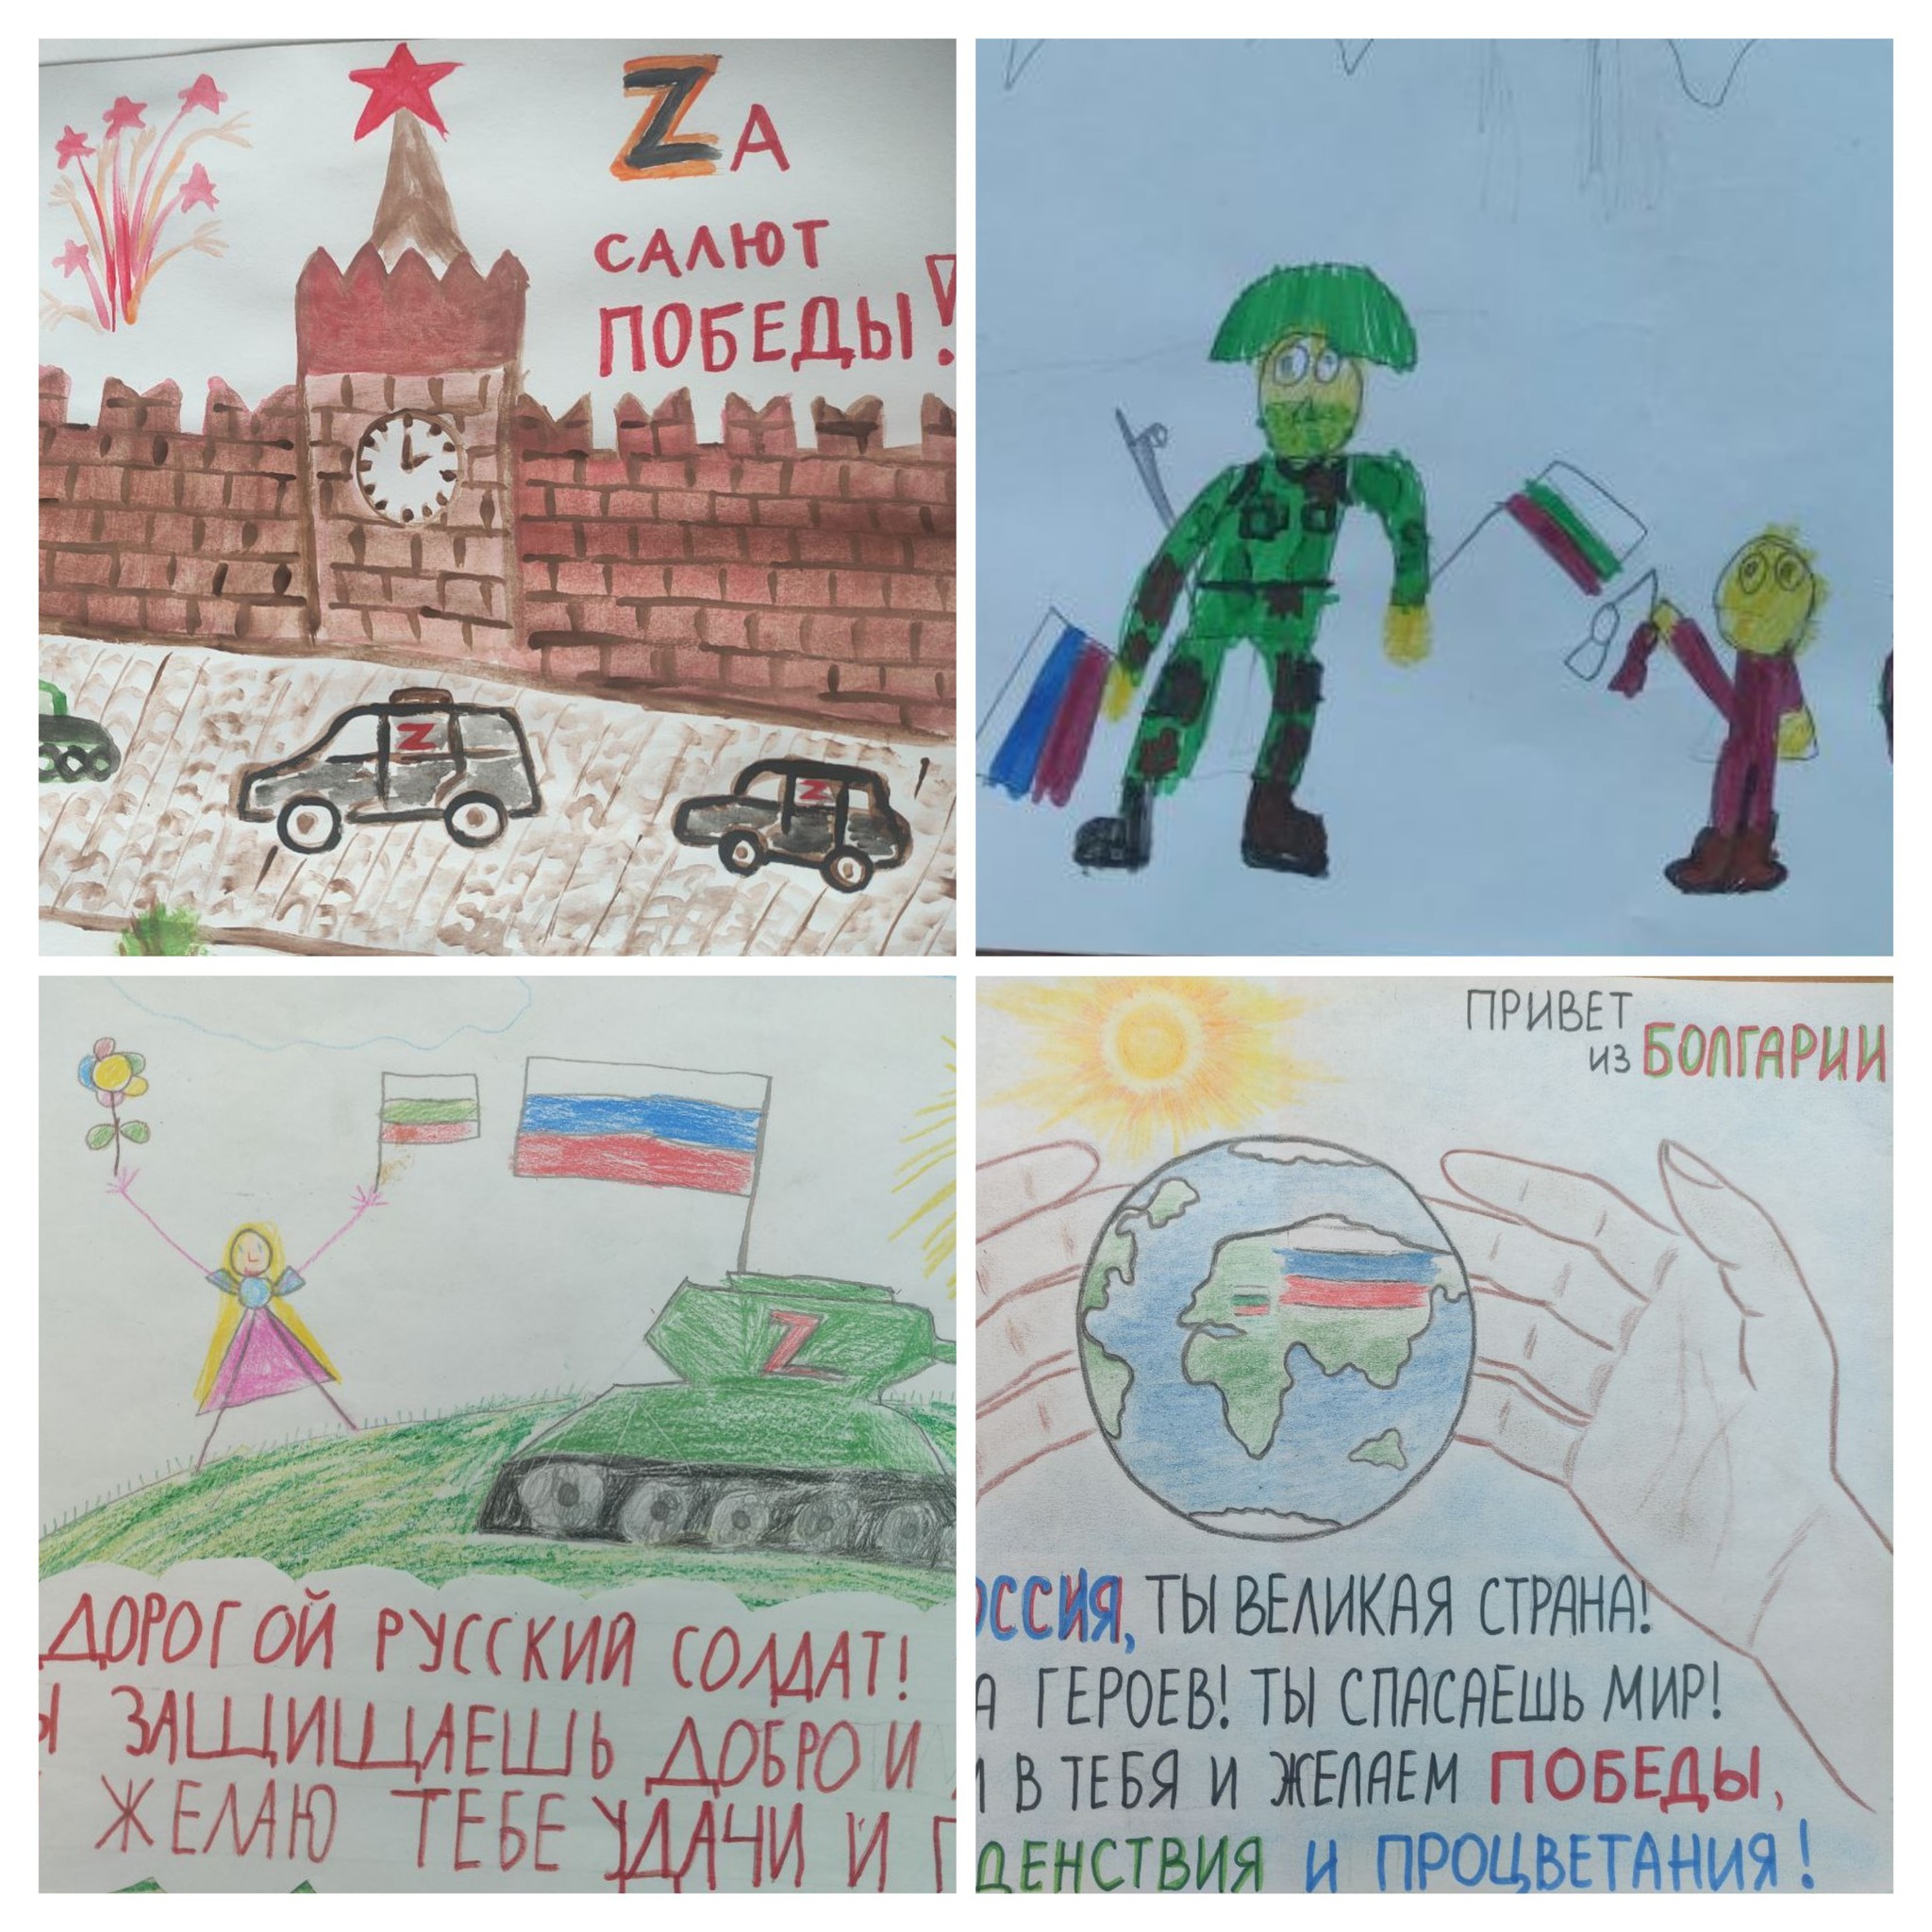 ZА
САЛЮТ
ПОБЕДЫ!
Z
Z
Z
ДОРОГОЙ РУССКИЙ СОЛДАТ!
Ы ЗАЩИЩАЕШЬ ДОБРО И
ЖЕЛАЮ ТЕБЕ УДАЧИ И
ПРИВЕТ
ИЗ БОЛГАРИИ
ОССИЯ, ТЫ ВЕЛИКАЯ СТРАНА!
А ГЕРОЕВ! ТЫ СПАСАЕШЬ МИР!
В ТЕБЯ И ЖЕЛАЕМ ПОБЕДЫ,
ДЕНСТВИЯ И ПРОЦВЕТАНИЯ!